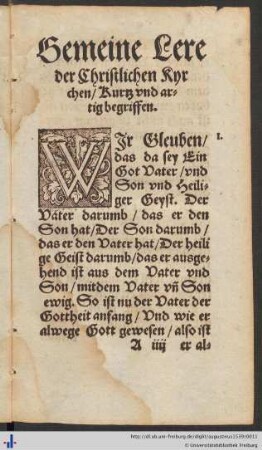 Gemeine Lere
der Christlichen Kyr
chen/ Kurtz vnd ar-
tig begriffen.
WIr Gleuben/ 1.
das da sey Ein
Got Vater/ vnd
Son vnd Heili-
ger Geyst. Der
Väter darumb/ das er den
Son hat/ Der Son darumb/
das er den Vater hat/ Der heili
ge Geist darumb/ das er ausge-
hend ist aus dem Vater vnd
Son/ mitdem Vater vñ Son
ewig. So ist nu der Vater der
Gottheit anfang/ Vnd wie er
alwege Gott gewesen/ also ist
A iiij er al-
© Universitätsbibliothek Freiburg